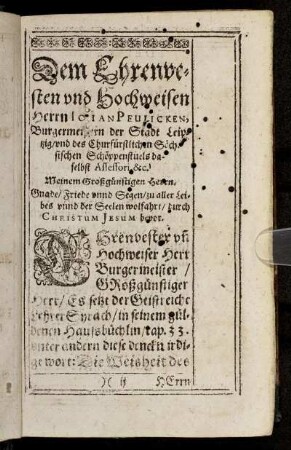 Dem Ehrenve-
sten vnd Hochweisen
Herrn PEULICKEN,
Burgermeistern der Stadt Leip-
tzig/vnd des Churfürstlichen Säch-
sischen Schöppenstuels da-
selbst Assessori, &c.
Meinem Großgünstigen Herrn,
Gnade/Friede vnnd Segen/zu aller Lei-
bes vnnd der Seelen wolfart/durch
CHRISTUM JESUM bevor.
EHrenvester vñ
Hochweiser Herr
Burgermeister /
GRoßgünstiger
Herr/ Es setzt der Geistreiche
Lehrer Syrach/in seinem gül-
denen Hausbüchlin/cap. 33.
vnter andern diese denckwirdi-
ge wort: Die Weisheit des
)( ij HErrn